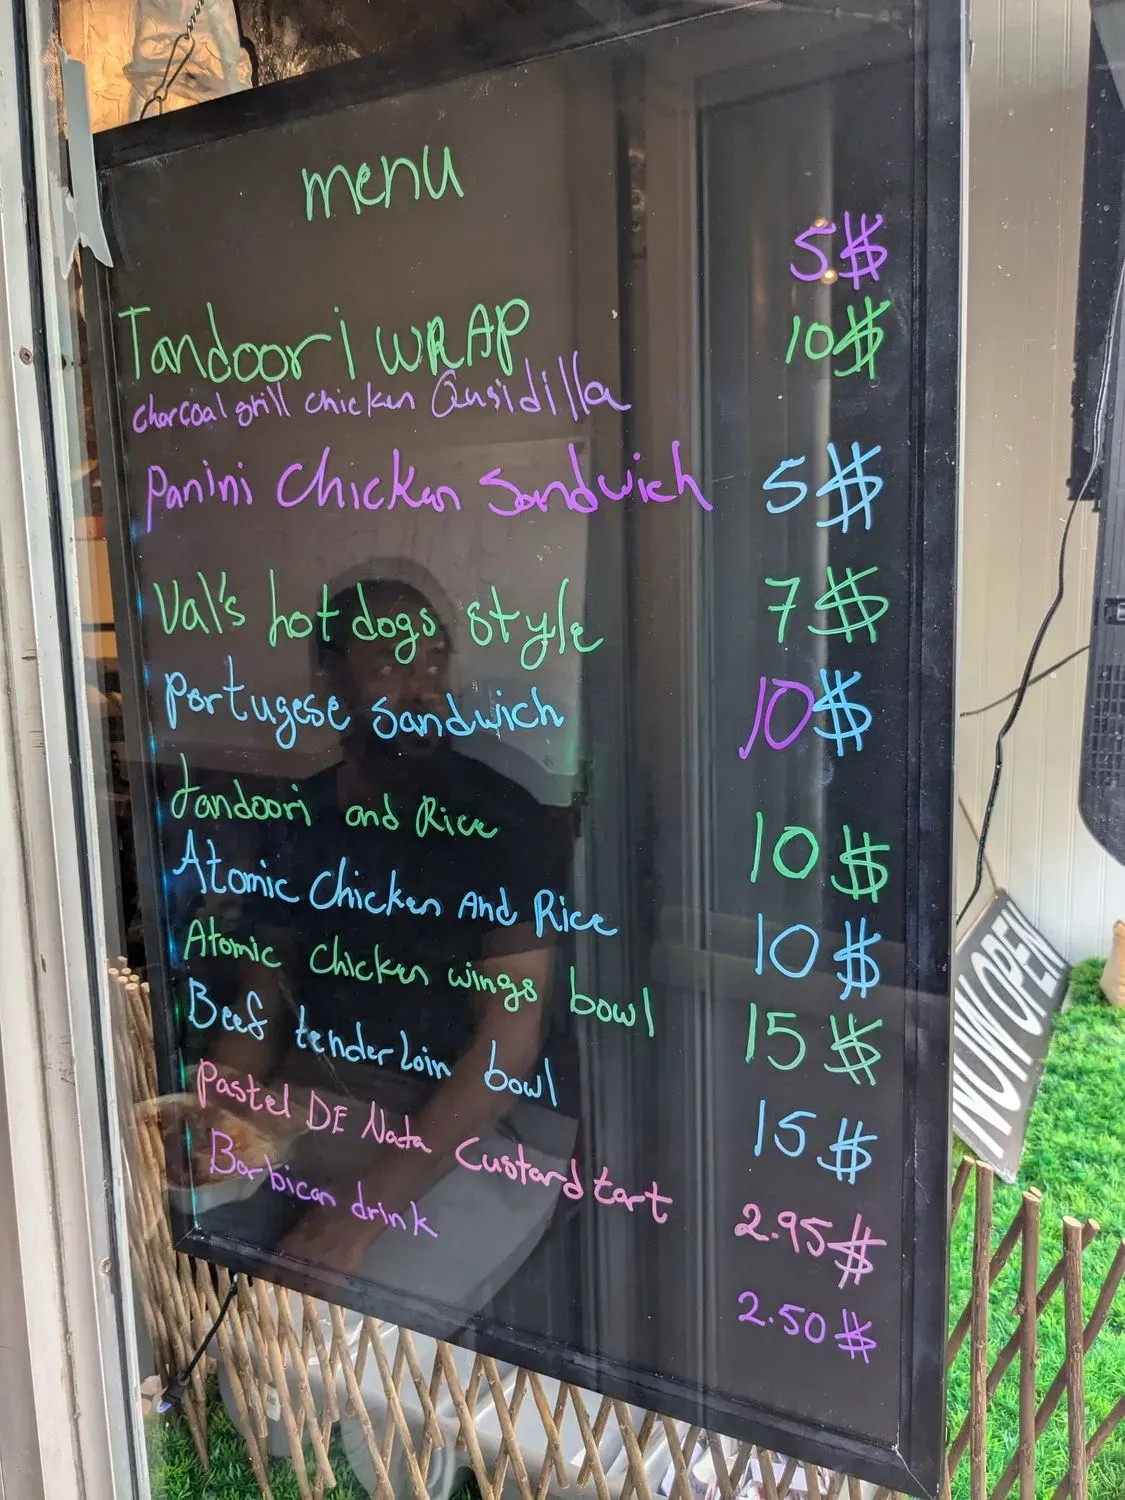 menu
Tandoori WRAP 5$
charcoal grill chicken Qusidilla 10$
Panini Chicken Sandwich 5$
Val's hot dogs style 7$
Portugese Sandwich 10$
Tandoori and Rice 10$
Atomic Chicken And Rice 10$
Atomic Chicken wings bowl 15$
Beef tenderloin bowl 15$
Pastel DE Nata Custard tart 2.95$
Barbican drink 2.50$
NOW OPEN